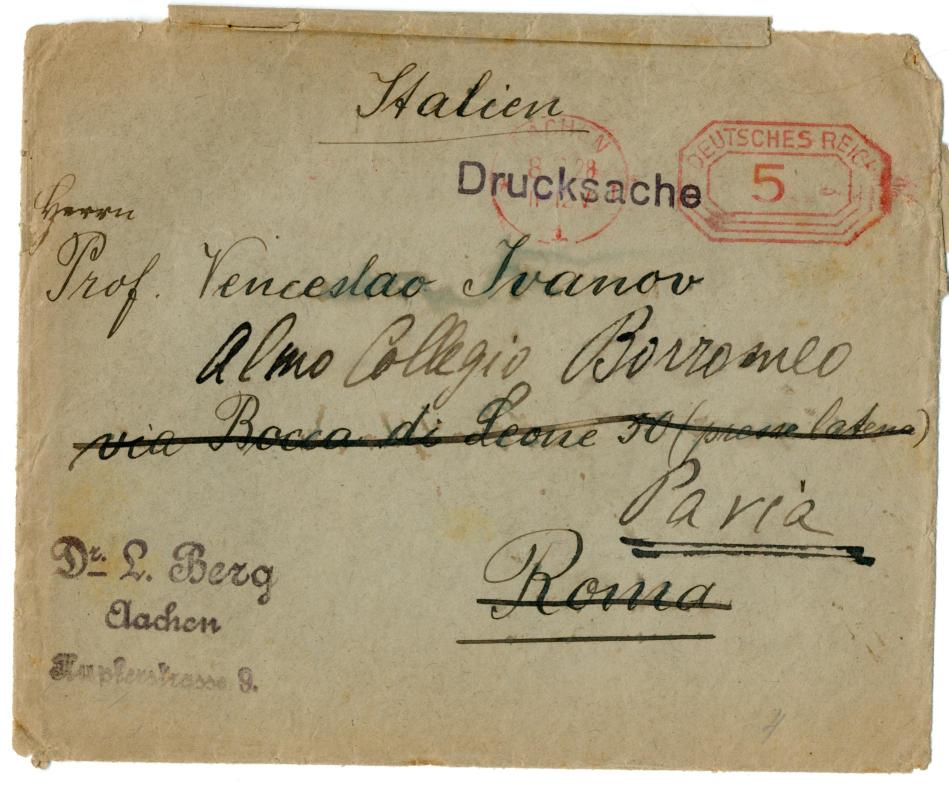 Italien
AACHEN
8. 28
1
DEUTSCHES REICH
5
Drucksache
Herrn
Prof. Venceslao Ivanov
Almo Collegio Borromeo
via Bocca di Leone 50 (presso latena)
Pavia
Roma
Dr. L. Berg
Aachen
Kupferstrasse 9.